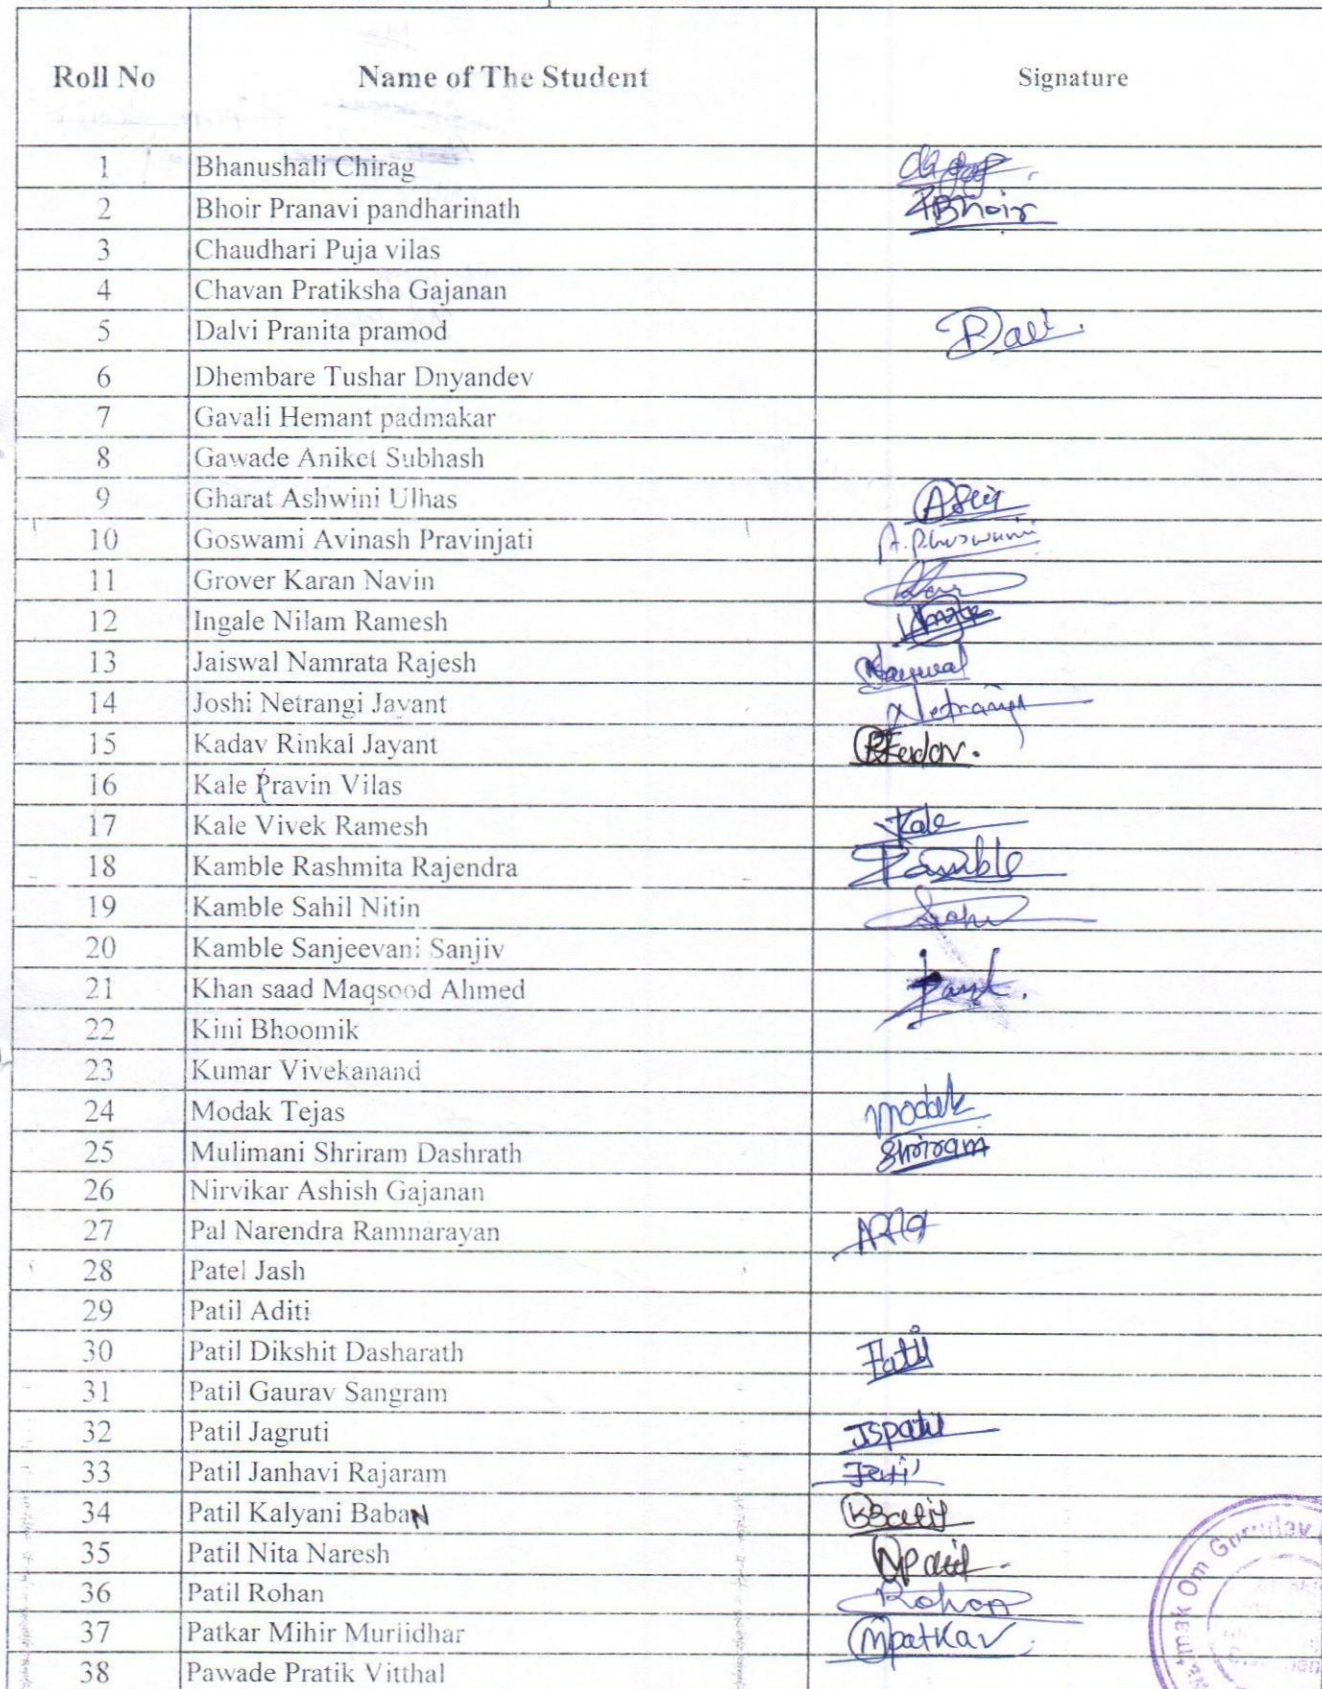 Roll No Name of The Student Signature
1 Bhanushali Chirag
2 Bhoir Pranavi pandharinath PBhoir
3 Chaudhari Puja vilas
4 Chavan Pratiksha Gajanan
5 Dalvi Pranita pramod
6 Dhembare Tushar Dnyandev
7 Gavali Hemant padmakar
8 Gawade Aniket Subhash
9 Gharat Ashwini Ulhas
10 Goswami Avinash Pravinjati
11 Grover Karan Navin
12 Ingale Nilam Ramesh
13 Jaiswal Namrata Rajesh
14 Joshi Netrangi Jayant Netrangi
15 Kadav Rinkal Jayant
16 Kale Pravin Vilas
17 Kale Vivek Ramesh Kale
18 Kamble Rashmita Rajendra Kamble
19 Kamble Sahil Nitin
20 Kamble Sanjeevani Sanjiv
21 Khan saad Maqsood Ahmed
22 Kini Bhoomik
23 Kumar Vivekanand
24 Modak Tejas Modak
25 Mulimani Shriram Dashrath Shriram
26 Nirvikar Ashish Gajanan
27 Pal Narendra Ramnarayan
28 Patel Jash
29 Patil Aditi
30 Patil Dikshit Dasharath Patil
31 Patil Gaurav Sangram
32 Patil Jagruti JSpatil
33 Patil Janhavi Rajaram
34 Patil Kalyani BabaN
35 Patil Nita Naresh NPatil
36 Patil Rohan Rohan
37 Patkar Mihir Murlidhar Mpatkar
38 Pawade Pratik Vitthal
Om Gurudev